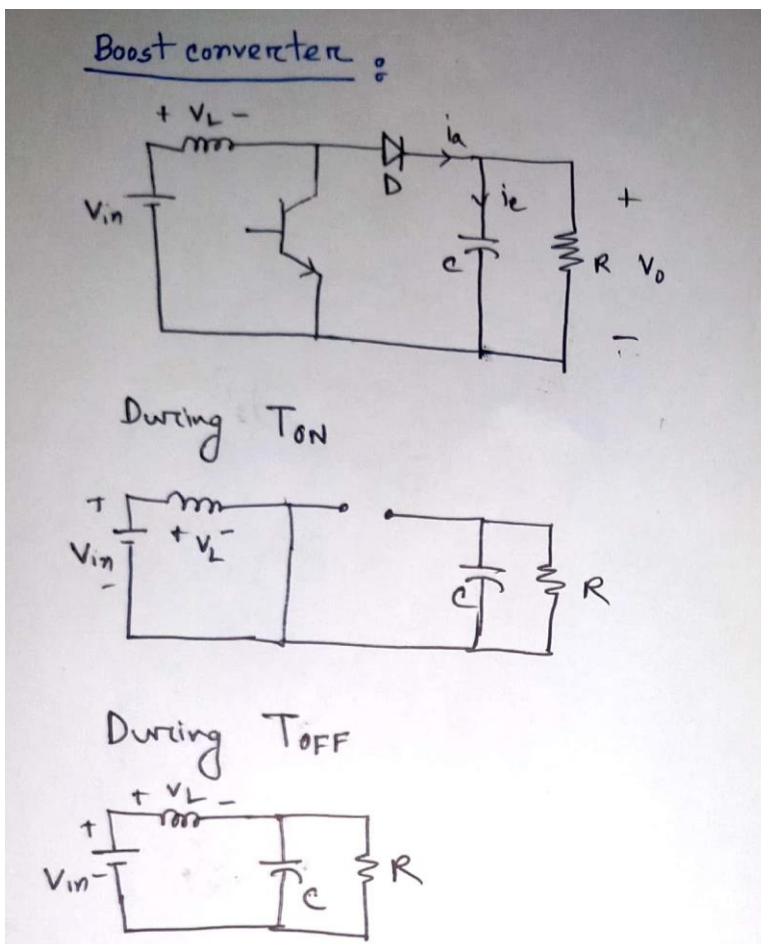 Boost converter :
+ VL -
ia
D
Vin
ic
+
C
R
Vo
-
During TON
+
Vin
-
+ VL -
C
R
During TOFF
+ VL -
+
Vin
-
C
R